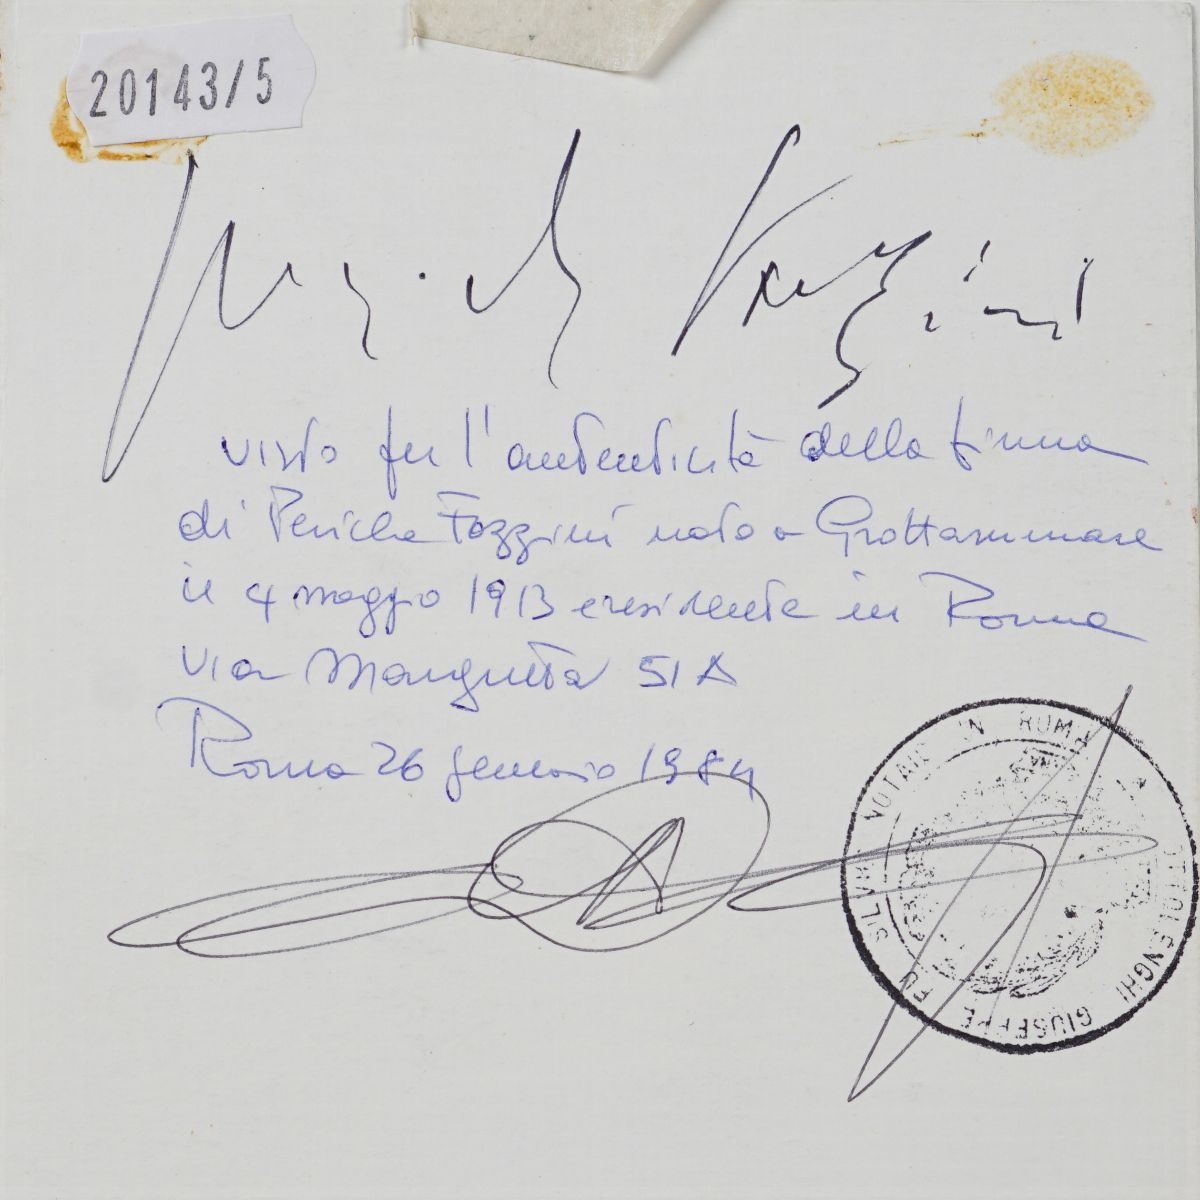 20143/5
Pericle Fazzini
visto per l'autenticità della firma
di Pericle Fazzini nato a Grottammare
il 4 maggio 1913 e residente in Roma
via Margutta 51 A
Roma 26 gennaio 1984
GIUSEPPE FU SILVIO NOTAIO IN ROMA